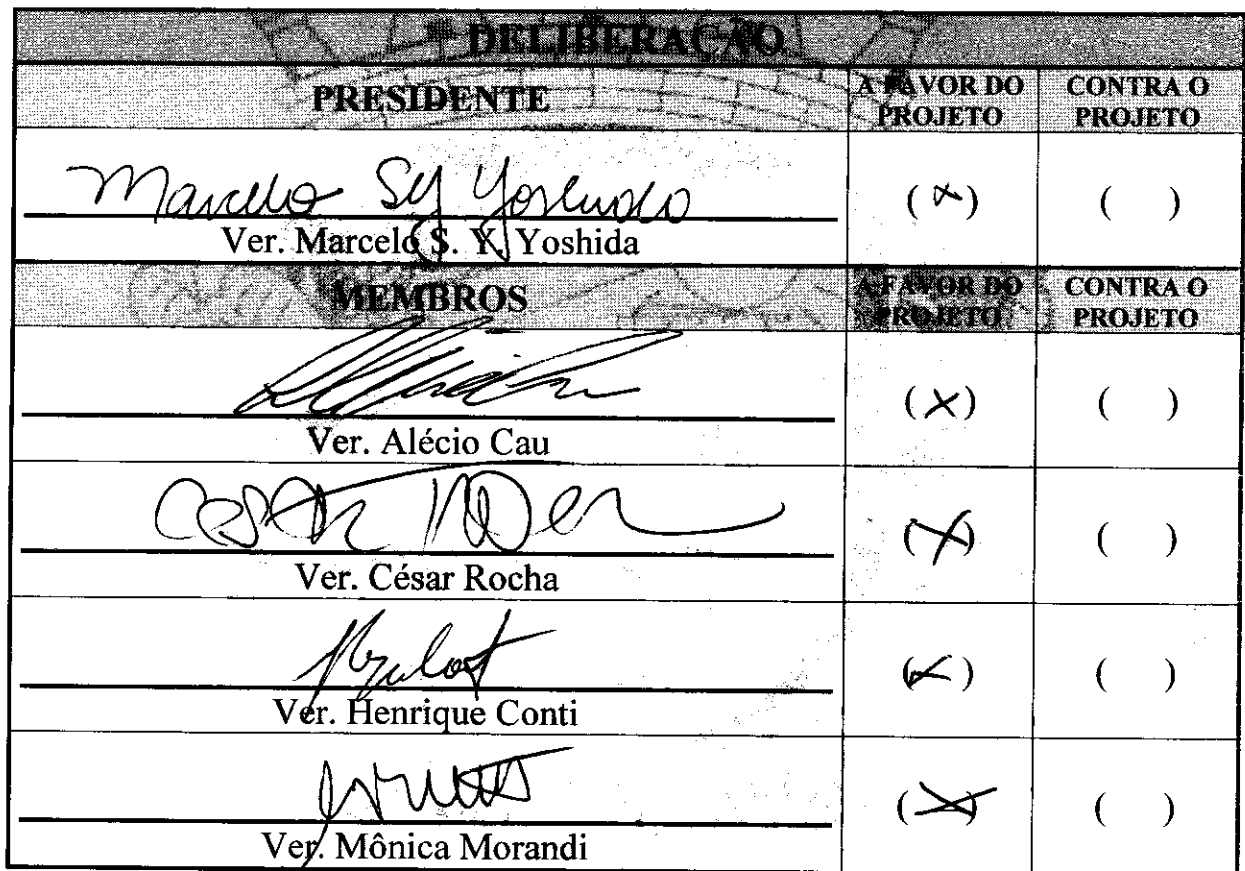 DELIBERAÇÃO
PRESIDENTE
A FAVOR DO PROJETO
CONTRA O PROJETO
Marcelo Sy Yoshida
(x)
( )
Ver. Marcelo S. Y. Yoshida
MEMBROS
A FAVOR DO PROJETO
CONTRA O PROJETO
(x)
( )
Ver. Alécio Cau
(x)
( )
Ver. César Rocha
(x)
( )
Ver. Henrique Conti
(x)
( )
Ver. Mônica Morandi